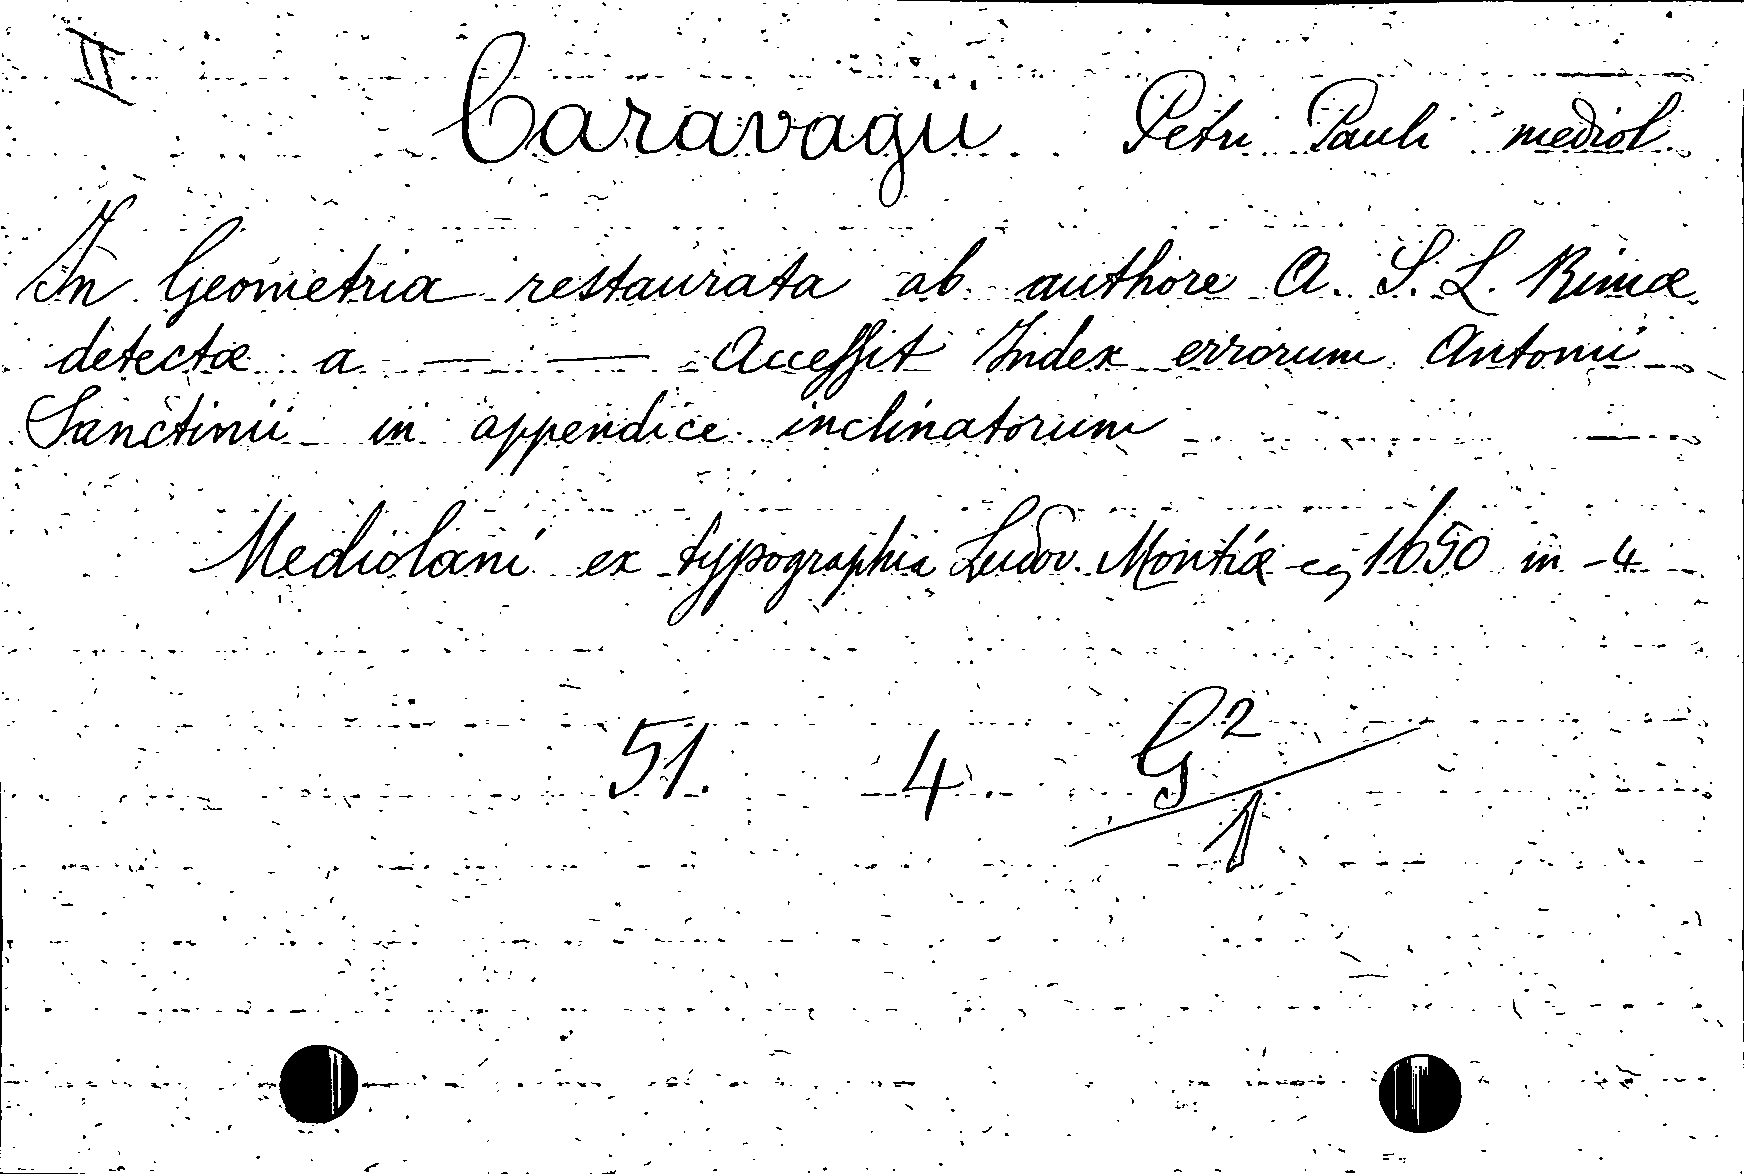 II
Caravagii Petri Pauli mediol.
In Geometria restaurata ab authore A. S. L. Rimæ
detectæ a — — Accessit Index errorum Antonii
Sanctinii in appendice inclinatorum
Mediolani ex typographia Ludov. Montiæ 1650 in -4
51. 4. G2
1